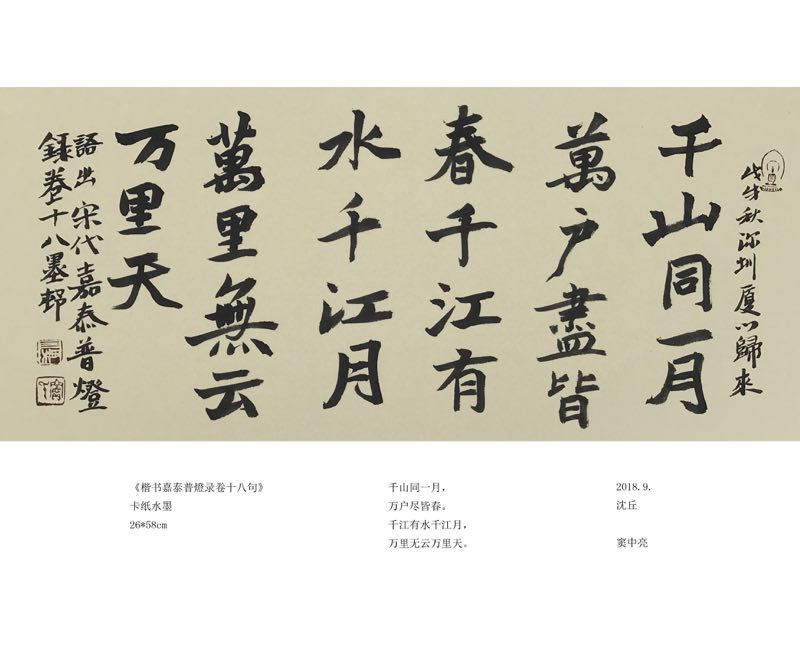 戊戌秋深圳厦门歸來
千山同一月
萬户盡皆
春千江有
水千江月
萬里無云
万里天
語出宋代嘉泰普燈
録卷十八墨邨
《楷书嘉泰普燈录卷十八句》
卡纸水墨
26*58cm
千山同一月，
万户尽皆春。
千江有水千江月，
万里无云万里天。
2018.9.
沈丘
窦中亮